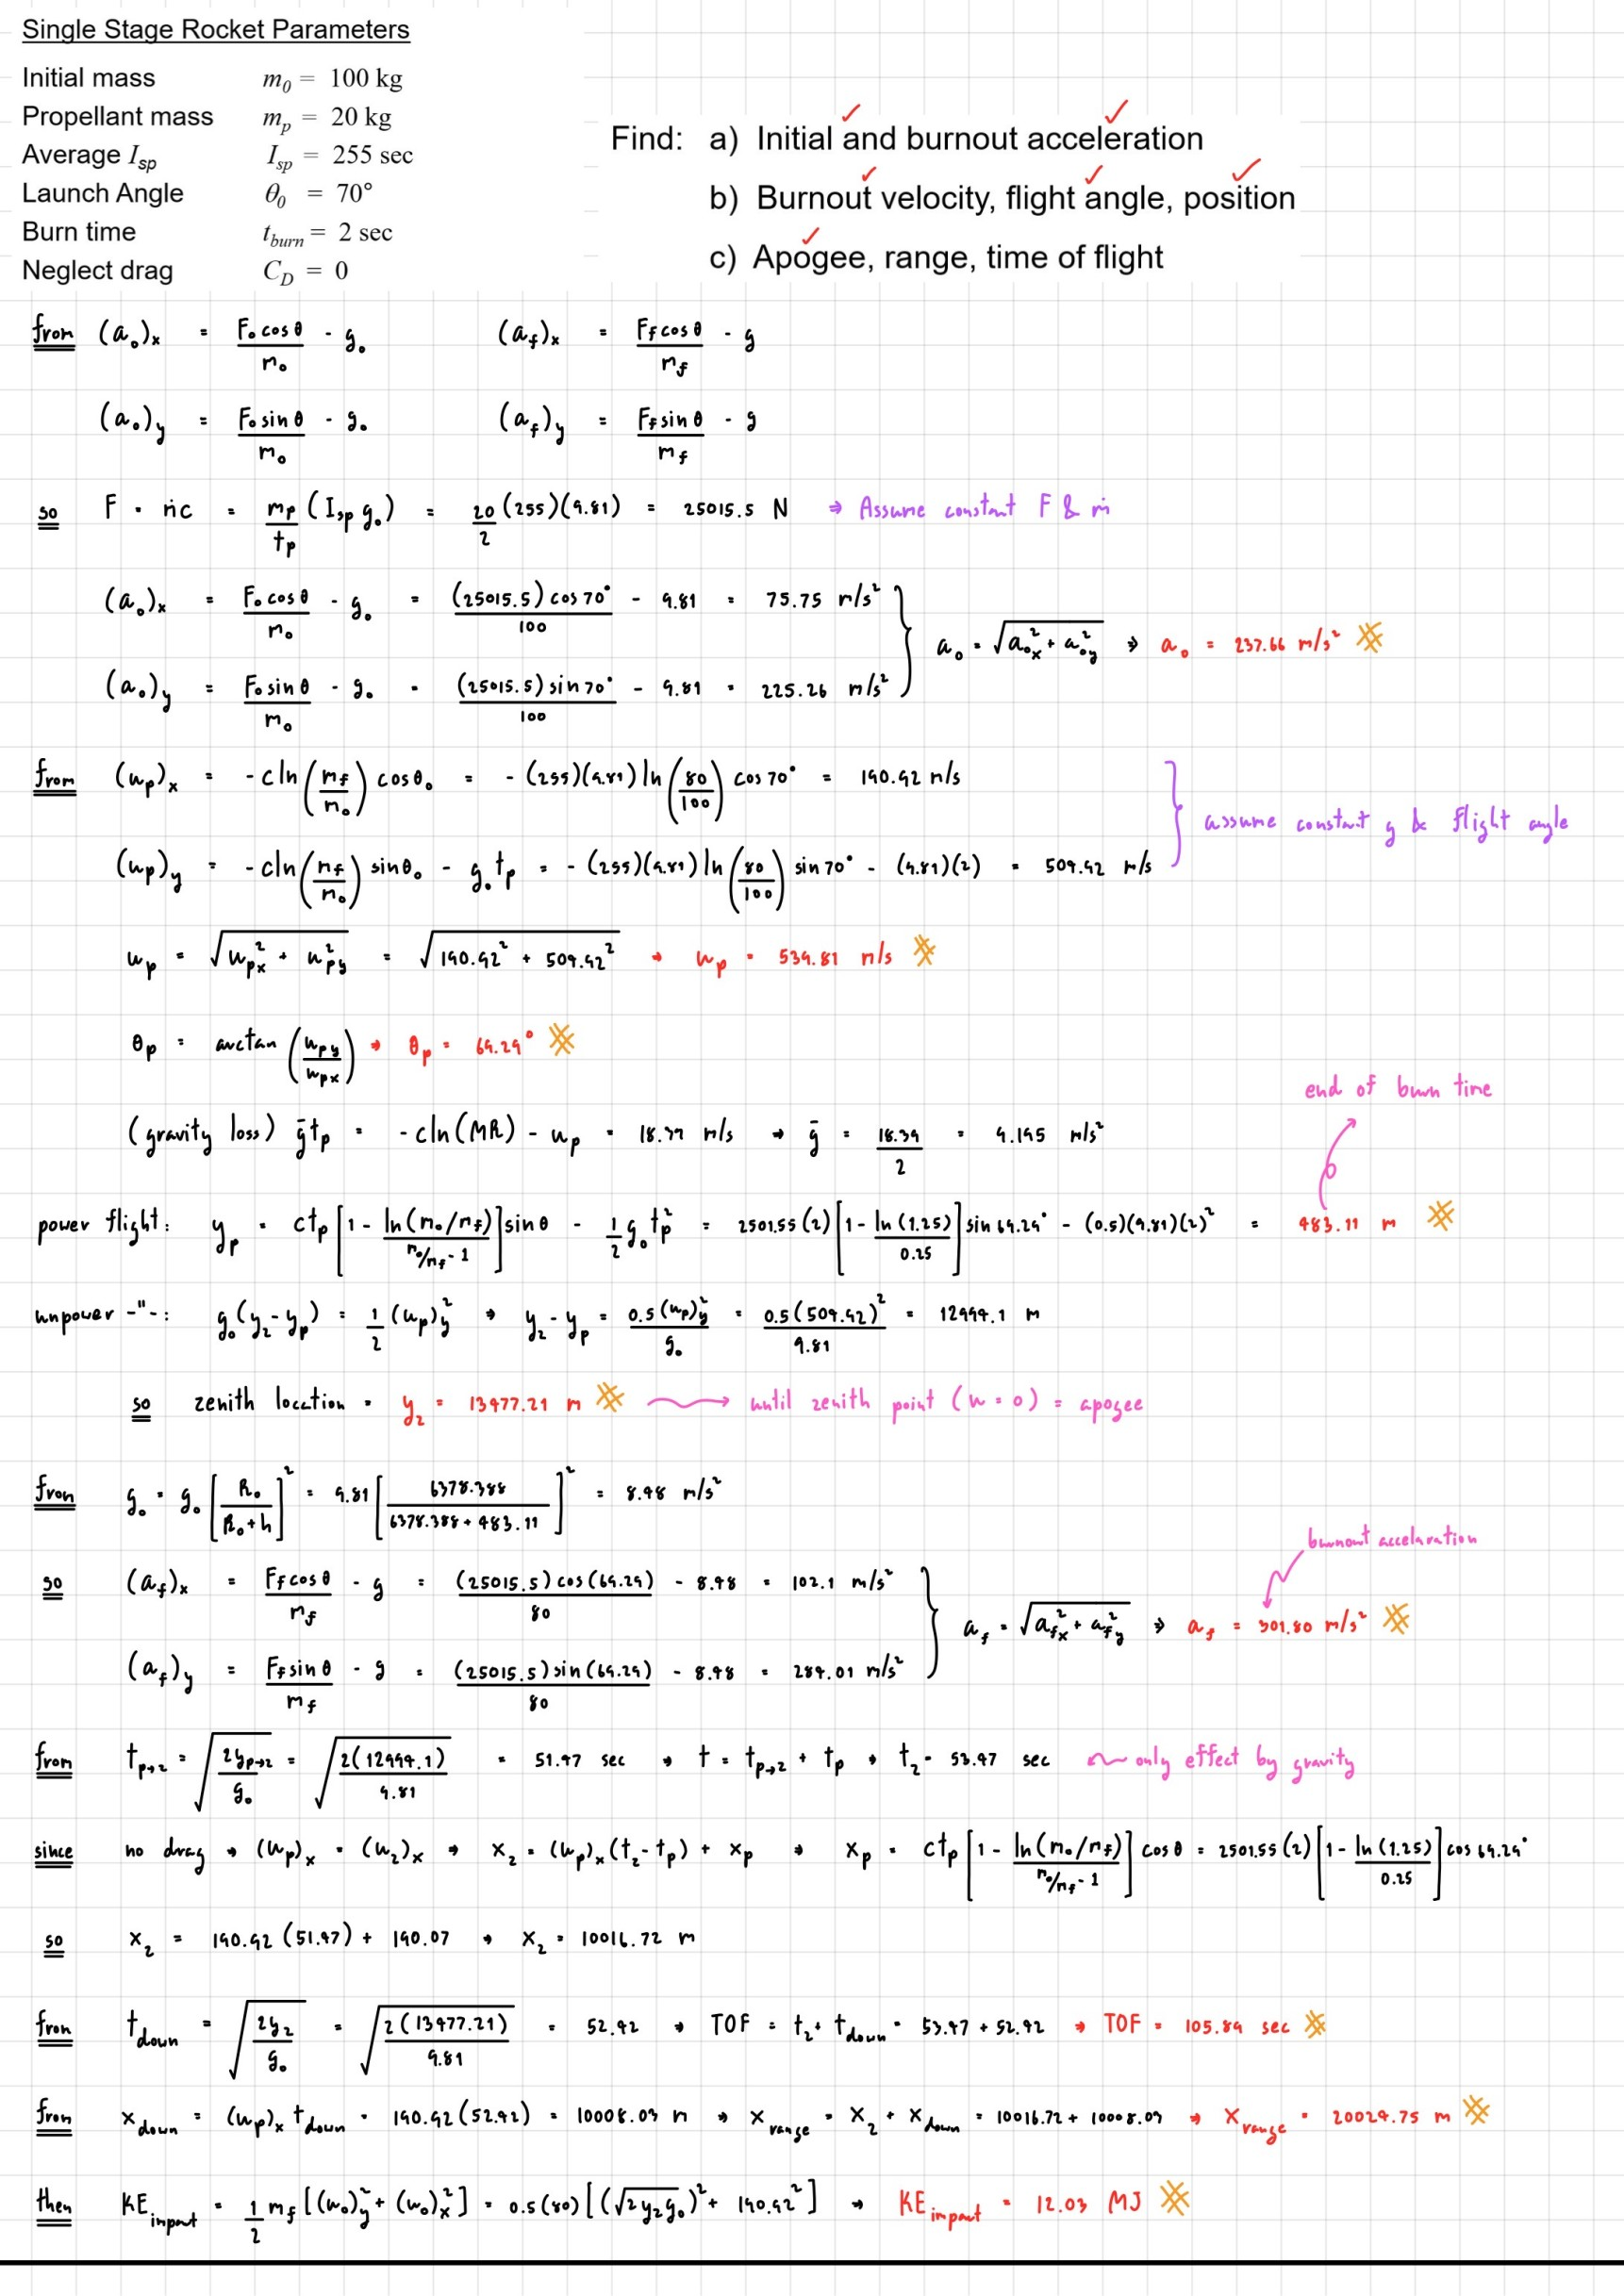 Single Stage Rocket Parameters
Initial mass m₀ = 100 kg
Propellant mass mₚ = 20 kg
Average Isp Isp = 255 sec
Launch Angle θ₀ = 70°
Burn time tburn = 2 sec
Neglect drag C_D = 0
Find: a) Initial and burnout acceleration
b) Burnout velocity, flight angle, position
c) Apogee, range, time of flight
from (a₀)x = F₀cosθ/m₀ - g₀ (af)x = Ff cosθ/mf - g
(a₀)y = F₀sinθ/m₀ - g₀ (af)y = Ff sinθ/mf - g
so F = ṁc = mp/tp (Isp g₀) = 20/2 (255)(9.81) = 25015.5 N ⇒ Assume constant F & ṁ
(a₀)x = F₀cosθ/m₀ - g₀ = (25015.5)cos70°/100 - 9.81 = 75.75 m/s²
a₀ = √(a₀x² + a₀y²) ⇒ a₀ = 237.66 m/s²
(a₀)y = F₀sinθ/m₀ - g₀ = (25015.5)sin70°/100 - 9.81 = 225.26 m/s²
from (up)x = -cln(mf/m₀)cosθ₀ = -(255)(9.81)ln(80/100)cos70° = 190.92 m/s
assume constant g & flight angle
(up)y = -cln(mf/m₀)sinθ₀ - g₀tp = -(255)(9.81)ln(80/100)sin70° - (9.81)(2) = 504.92 m/s
up = √(upx² + upy²) = √(190.92² + 504.92²) → up = 539.81 m/s
θp = arctan(upy/upx) → θp = 69.29°
(gravity loss) ḡtp = -cln(MR) - up = 18.39 m/s → ḡ = 18.39/2 = 9.195 m/s²
end of burn time
power flight: yp = ctp[1 - ln(m₀/mf)/(m₀/mf - 1)]sinθ - 1/2 g₀tp² = 2501.55(2)[1 - ln(1.25)/0.25]sin69.29° - (0.5)(9.81)(2)² = 483.11 m
unpower -"-: g₀(y₂-yp) = 1/2 (up)y² → y₂-yp = 0.5(up)y²/g₀ = 0.5(504.92)²/9.81 = 12994.1 m
so zenith location = y₂ = 13477.21 m → until zenith point (u = 0) = apogee
from g₀ = g₀[R₀/(R₀+h)]² = 9.81[6378.388/(6378.388+483.11)]² = 8.48 m/s²
burnout accelaration
so (af)x = Ff cosθ/mf - g = (25015.5)cos(69.29)/80 - 8.48 = 102.1 m/s²
af = √(afx² + afy²) ⇒ af = 301.80 m/s²
(af)y = Ff sinθ/mf - g = (25015.5)sin(69.29)/80 - 8.48 = 284.01 m/s²
from tp→2 = √(2yp→2/g₀) = √(2(12994.1)/9.81) = 51.47 sec → t = tp→2 + tp → t₂ = 53.47 sec ← only effect by gravity
since no drag → (up)x = (u₂)x → x₂ = (up)x(t₂-tp) + xp → xp = ctp[1 - ln(m₀/mf)/(m₀/mf - 1)]cosθ = 2501.55(2)[1 - ln(1.25)/0.25]cos69.29°
so x₂ = 190.92(51.47) + 190.07 → x₂ = 10016.72 m
from tdown = √(2y₂/g₀) = √(2(13477.21)/9.81) = 52.42 → TOF = t₂ + tdown = 53.47 + 52.42 → TOF = 105.89 sec
from xdown = (up)x tdown = 190.92(52.42) = 10008.03 m → xrange = x₂ + xdown = 10016.72 + 10008.03 → xrange = 20024.75 m
then KEimpact = 1/2 mf[(u₀)y² + (u₀)x²] = 0.5(80)[(√2y₂g₀)² + 190.92²] → KEimpact = 12.03 MJ